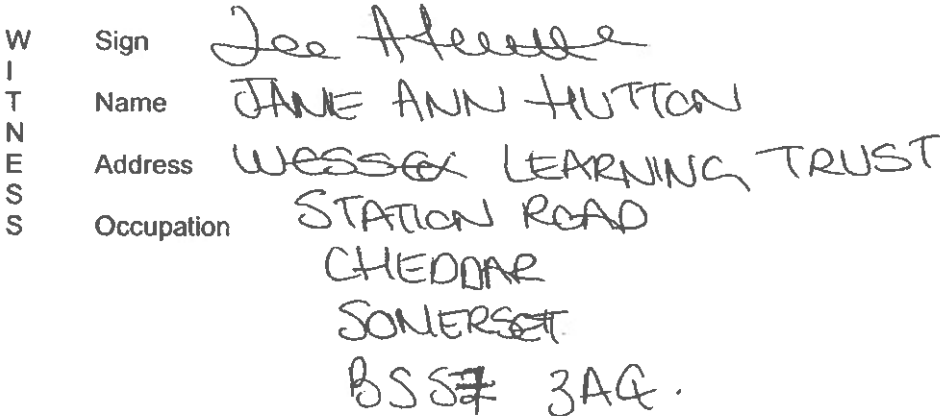 WITNESS
Sign
Name JANE ANN HUTTON
Address WESSEX LEARNING TRUST
Occupation STATION ROAD
CHEDDAR
SOMERSET
3AQ.